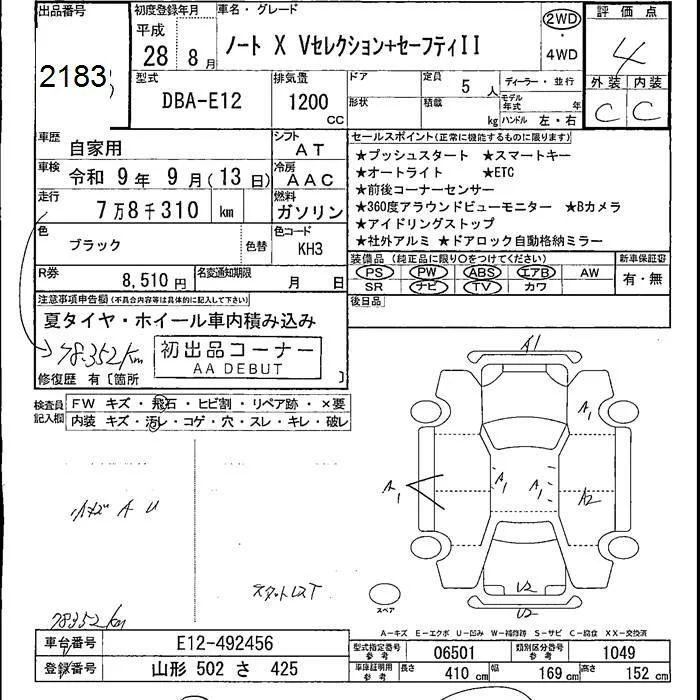 出品番号 初度登録年月 車名・グレード 2WD 評価点
2183 平成 28 8月 ノート X Vセレクション+セーフティII ・ 4WD 4
型式 排気量 ドア 定員 ディーラー・並行 外装 内装
DBA-E12 1200 CC 形状 積載 5人 kg モデル年式 年 ハンドル 左・右 C C
車歴 自家用 シフト AT セールスポイント(正常に機能するものに限ります)
車検 令和 9年 9月(13日) 冷房 AAC ★プッシュスタート ★スマートキー
★オートライト ★ETC
走行 7万8千310 km 燃料 ガソリン ★前後コーナーセンサー
★360度アラウンドビューモニター ★Bカメラ
色 ブラック 色替 色コード KH3 ★アイドリングストップ
★社外アルミ ★ドアロック自動格納ミラー
R券 8,510円 名変通知期限 月 日 装備品(純正品に限り○をつけてください) 新車保証書
PS PW ABS エアB AW 有・無
SR ナビ TV カワ
注意事項申告欄(不具合内容等は具体的に記入して下さい) 後日品
夏タイヤ・ホイール車内積み込み
78.352km 初出品コーナー
AA DEBUT
修復歴 有〔箇所 〕
検査員記入欄 FW キズ・飛石・ヒビ割・リペア跡・×要
内装 キズ・汚レ・コゲ・穴・スレ・キレ・破レ
A1
A1
A1 A1 A1 A2
小キズ A U
スタットレスT
スペア
U2
U2
78352km
A-キズ E-エクボ U-凹み W-補修跡 S-サビ C-腐食 XX-交換済
車台番号 E12-492456 型式指定番号 参考 06501 類別区分番号 参考 1049
登録番号 山形 502 さ 425 車庫証明用 参考 長さ 410 cm 幅 169 cm 高さ 152 cm